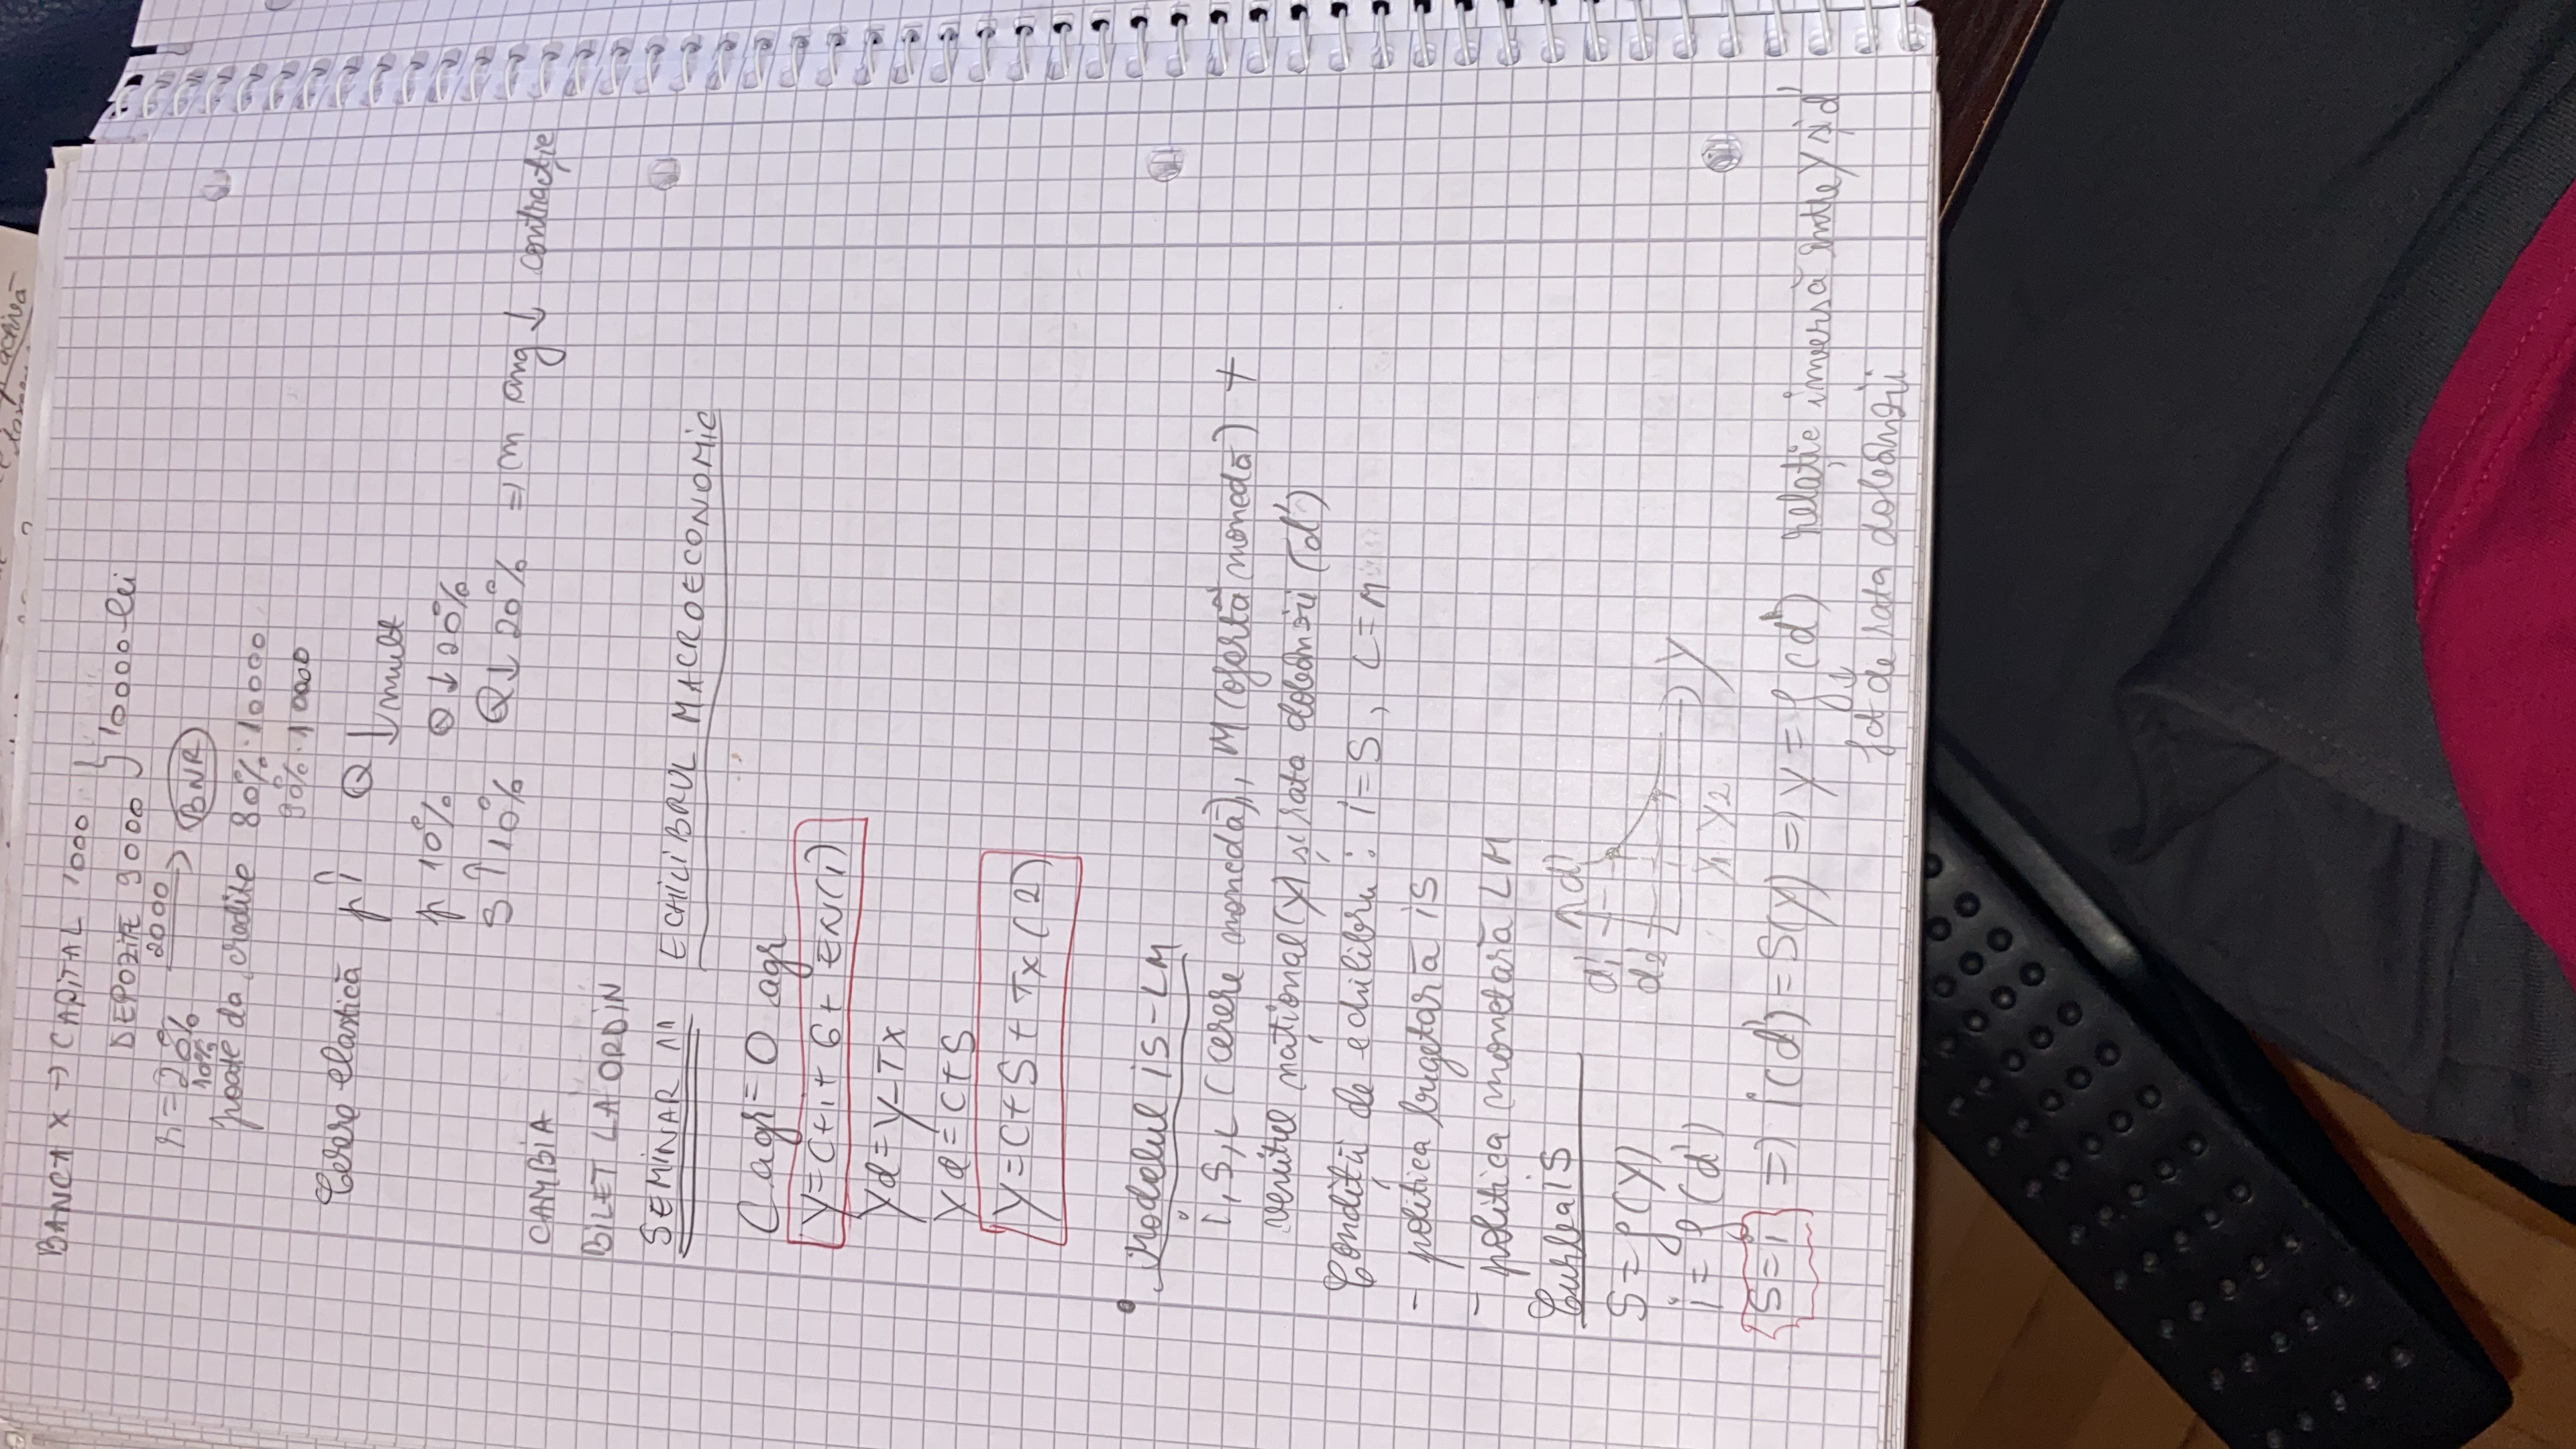 activă
BANCA X → CAPITAL 1000
DEPOZITE 9000 } 10000 lei
r = 20% 2000 → BNR
10%
poate da credite 80% · 10000
90% · 10000
Cerere elastică p↑ Q↓ mult
p 10% Q↓ 20%
S↑10% Q↓ 20% => m ang ↓ contracție
CAMBIA
BILET LA ORDIN
SEMINAR 11 ECHILIBRUL MACROECONOMIC
C agr = O agr
Y=C+i+G+ EN(1)
Yd=y-Tx
Yd=C+S
Y=C+S+Tx (2)
• Modelul iS-LM
i, S, L (cerere monedă), M (ofertă monedă) +
venitul național (y) și rata dobânzii (d')
Condiții de echilibru: i=S, L=M
- politica bugetară iS
- politica monetară LM
Curba iS
d'
d'1
d'2
y
y1 y2
S=f(y)
i=f(d')
S=i => i(d')=S(y) => y=f(d') relație inversă între y și d'
↓
fct de rata dobânzii